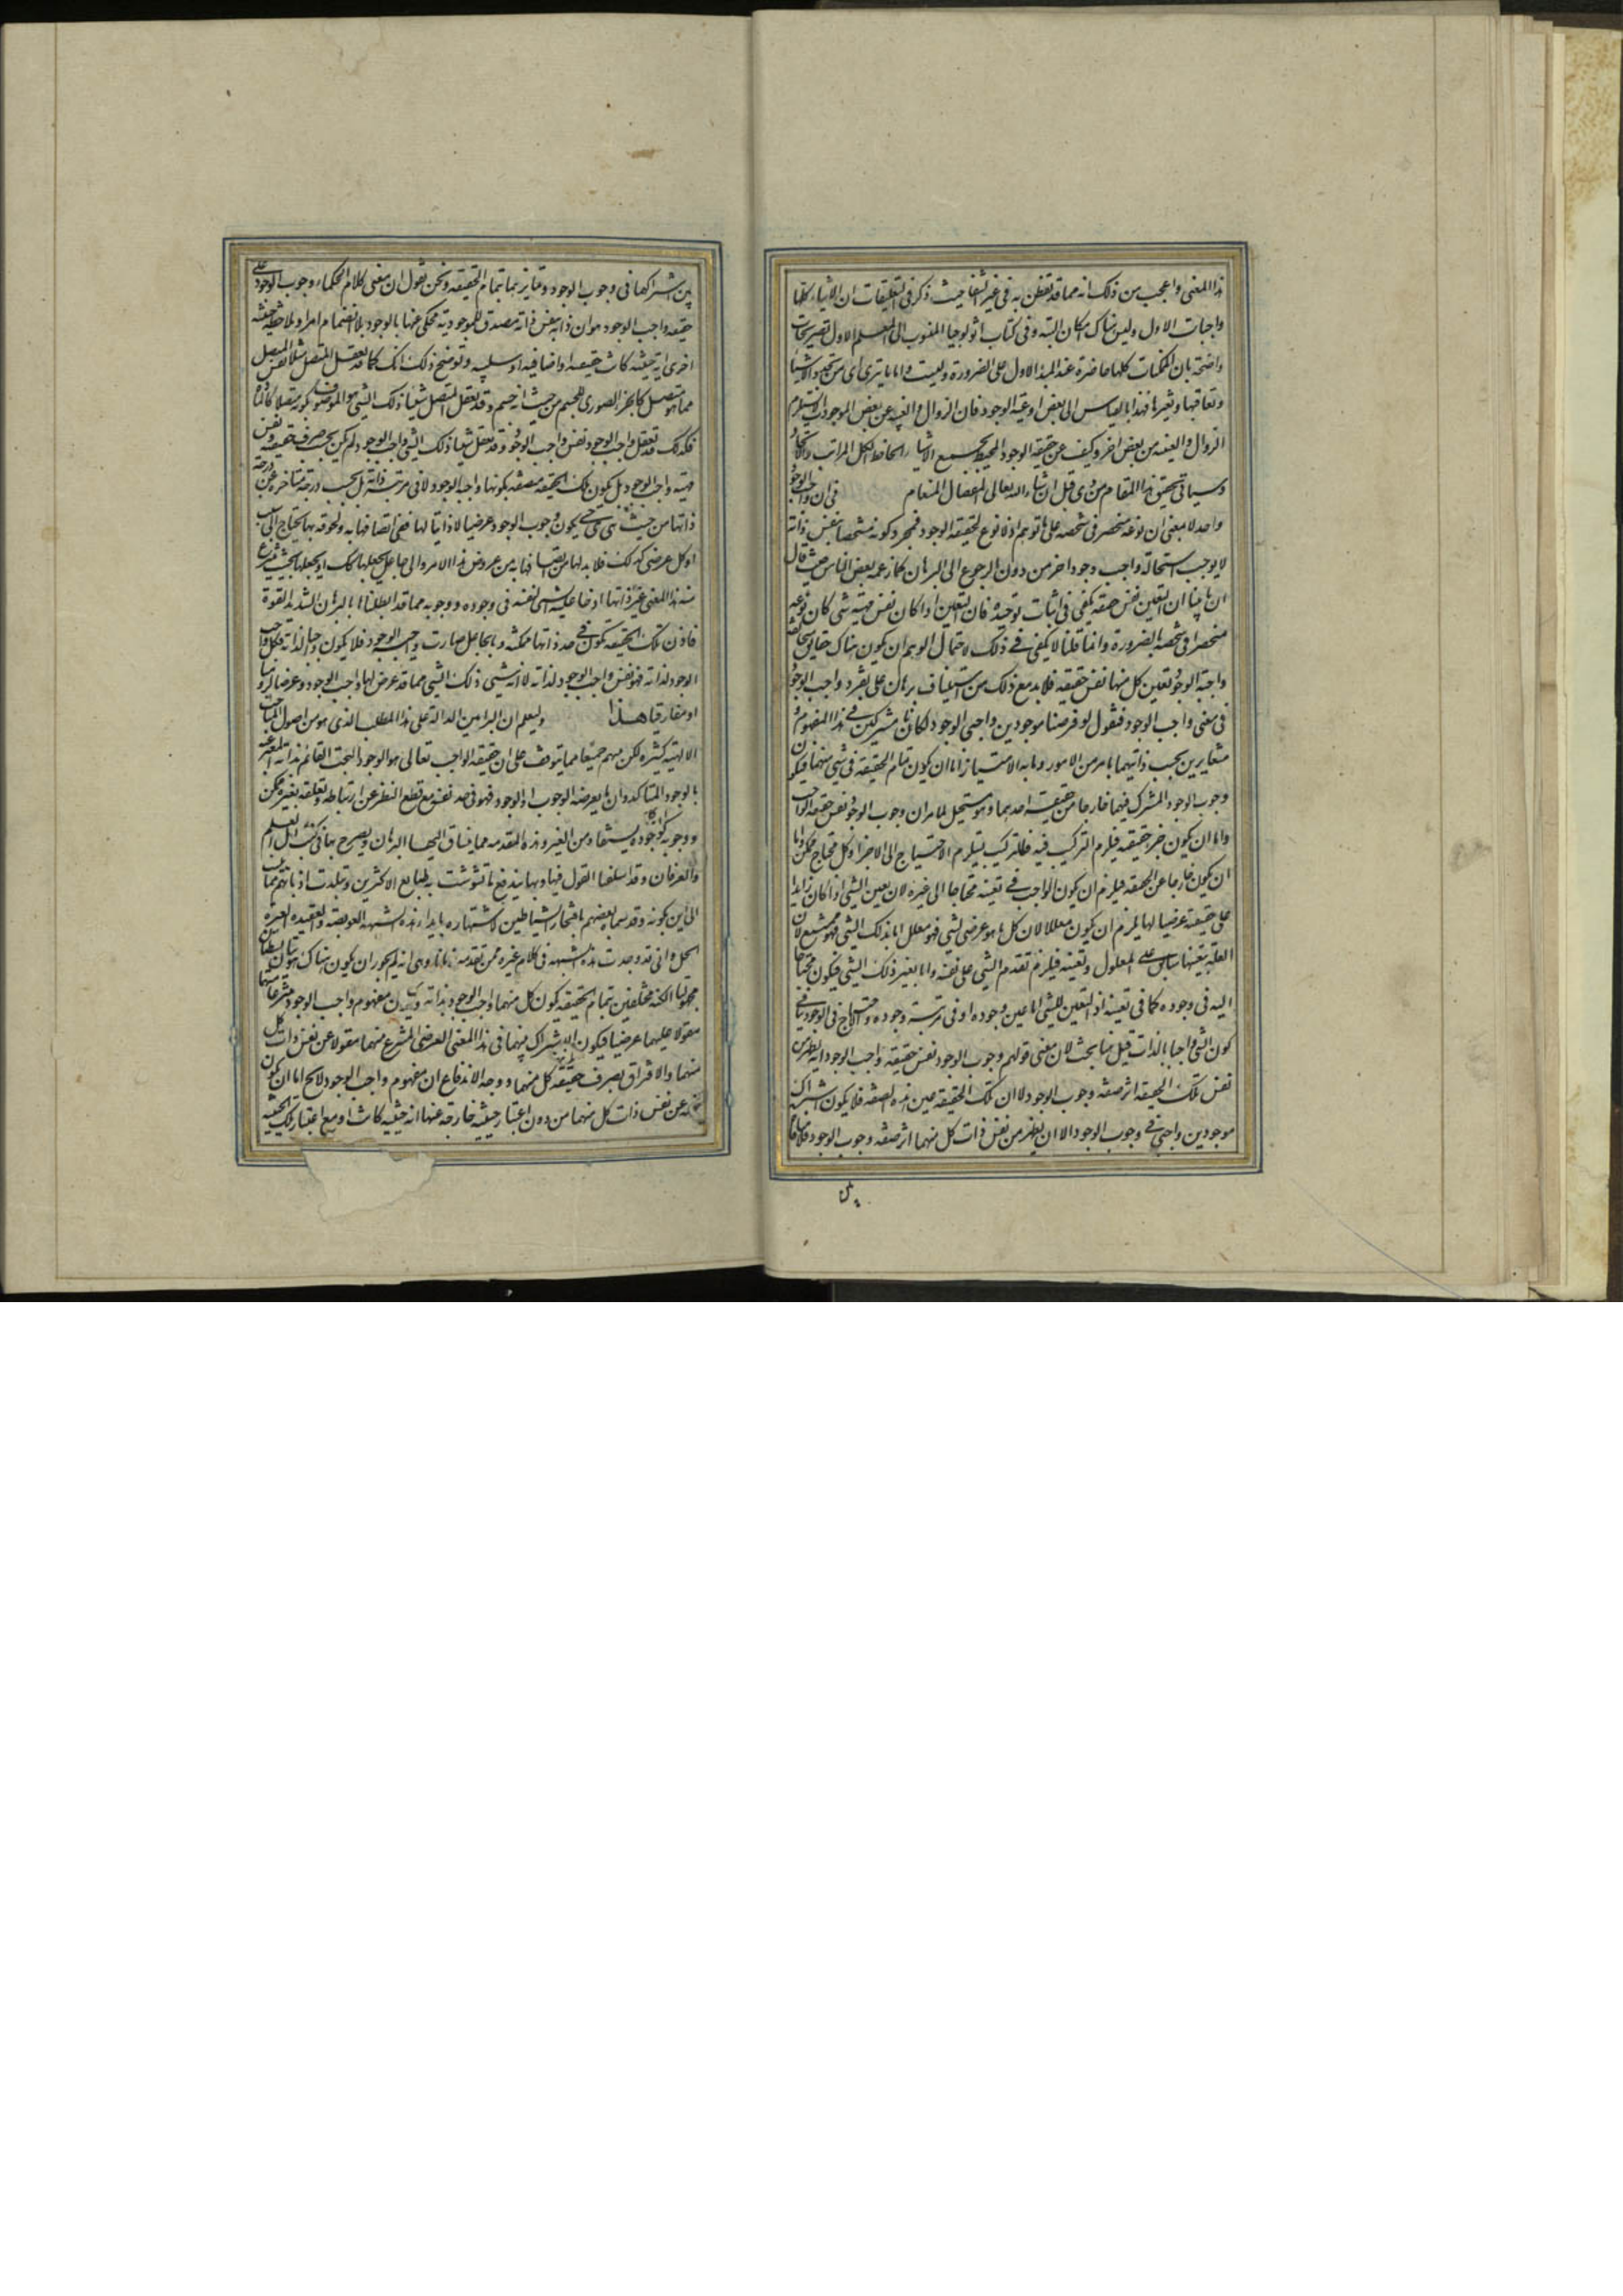 هذا المعنى واعجب من ذلك انه مما قد تفطن به فى غير الشفا حيث ذكر فى التعليقات ان الاشياء كلها
واجبات الاول وليس هناك امكان البتة وفى كتاب اثولوجيا المنسوب الى المعلم الاول تصريحات
واضحة بان الممكنات كلها حاضرة عند المبدء الاول على الضرورة والبت واما ما يترى اى من تجدد الاشياء
وتعاقبها وتغيرها فهذا بالقياس الى بعض اوعية الوجود فان الزوال والغيبة عن بعض الموجودات لا يستلزم
الزوال والغيبة من بعض اخر فكيف عن حقيقة الوجود المحيط بجميع الاشياء الحافظ لكل المراتب والانحاء
وسياتى تحقيق هذا المقام من ذى قبل ان شاء الله تعالى المفضال المنعام فى ان واجب الوجود
واحد لا بمعنى ان نوعه منحصر فى شخصه على ما توهم اذ لا نوع لحقيقة الوجود فمجرد كونه متشخصا بنفس ذاته
لا يوجب استحالة واجب وجود اخر من دون الرجوع الى البرهان كما زعمه بعض الناس حيث قال
ان ما بينا ان التعين نفس حقيقته يكفى فى اثبات توحيده فان التعين اذا كان نفس مهية شى كان نوعه
منحصرا فى شخصه بالضرورة وانما قلنا لا يكفى فى ذلك لاحتمال الوهم ان يكون هناك حقايق متخالفة
واجبة الوجود تعين كل منها نفس حقيقته فلا بد مع ذلك من استيناف برهان على تفرد واجب الوجود
فى معنى واجب الوجود فنقول لو فرضنا موجودين واجبى الوجود لكانا مشتركين فى هذا المفهوم و
متغايرين بحسب ذاتيهما بامر من الامور وما به الامتياز اما ان يكون تمام الحقيقة فى شى منهما فيكون
وجوب الوجود المشترك فيهما خارجا من حقيقة احدهما وهو مستحيل لما مر ان وجوب الوجود نفس حقيقة الواجب
واما ان يكون جزء حقيقته فيلزم التركيب فيه فالتركيب يستلزم الاحتياج الى الاجزاء وكل محتاج ممكن واما
ان يكون خارجا عن الحقيقة فيلزم ان يكون الواجب فى تعينه محتاجا الى غيره لان تعين الشى اذا كان زايدا
على حقيقته عرضيا لها يلزم ان يكون معللا لان كل ما هو عرضى لشى فهو معلل اما بذلك الشى فهو ممتنع لان
العلة بتعينها سابق على المعلول وتعينه فيلزم تقدم الشى على نفسه واما بغير ذلك الشى فيكون محتاجا
اليه فى وجوده كما فى تعينه اذ التعين للشى اما عين وجوده او فى مرتبة وجوده والاحتياج فى الوجود ينافى
كون الشى واجبا بالذات قيل هنا بحث لان معنى قولهم وجوب الوجود نفس حقيقة واجب الوجود انه يظهر من
نفس تلك الحقيقة اثر صفة وجوب الوجود لا ان تلك الحقيقة عين هذه الصفة فلا يكون اشتراك
موجودين واجبى فى وجوب الوجود الا ان يظهر من نفس ذات كل منهما اثر صفة وجوب الوجود فلا منافاة
بين
بين اشتراكهما فى وجوب الوجود وتمايزهما بتمام الحقيقة ونحن نقول ان معنى كلام الحكماء وجوب الوجود عين
حقيقة واجب الوجود هو ان ذاته بنفس ذاته مصدق للموجودية محكى عنها بالوجود بلا انضمام امر او ملاحظة حيثية
اخرى اية حيثية كانت حقيقية او اضافية او سلبية وتوضيح ذلك انك كما قد تعقل المتصل مثلا نفس المتصل
مما هو متصل كالجزء الصورى للجسم من حيث انه جسم وقد تعقل المتصل شيئا ذلك الشى هو الموصوف بكونه متصلا كالمادة
فكذلك قد تعقل واجب الوجود نفس واجب الوجود وقد تعقل شيئا ذلك الشى واجب الوجود ولم يكن بحسب صرف حقيقته ونفس
مهيته واجب الوجود بل يكون تلك الحقيقة متصفة بكونها واجبة الوجود لا فى مرتبة ذاته بل بحسب درجة متاخرة عن درجة
ذاتها من حيث هى هى فح يكون وجوب الوجود عرضيا لا ذاتيا لها ففى اتصافها به ولحوقه بها يحتاج الى سبب
اذ كل عرضى كذلك فلا بد لها من اتصافها به من عروض هذا الامر والى جاعل يجعلها كك او يجعلها بحيث ينتزع
منه هذا المعنى غير ذاتها اذ فاعلية الشى لنفسه فى وجوده ووجوبه مما قد ابطلناها بالبرهان الشديد القوة
فاذن تلك الحقيقة تكون فى حد ذاتها ممكنة وبالجاعل صارت واجب الوجود فلا يكون واجبا لذاته فكل واجب
الوجود لذاته فهو نفس واجب الوجود لذاته لا انه شى ذلك الشى مما قد عرض لها واجب الوجود عروضا لزوميا
او مفارقيا هذا وليعلم ان البراهين الدالة على هذا المطلب الذى هو من اصول المباحث
الالهية كثيرة لكن تتميم جميعها مما يتوقف على ان حقيقة الواجب تعالى هو الوجود البحت القائم بذاته المعبر عنه
بالوجود المتاكد وان ما يعرضه الوجوب او الوجود فهو فى حد نفسه مع قطع النظر عن ارتباطه وتعلقه بغيره ممكن
ووجوبه كوجوده يستفاد من الغير وهذه المقدمة مما ينساق اليها البرهان ويصرح بها فى كتب اهل العلم
والعرفان وقد اسلفنا القول فيها وبها يندفع ما تشوشت به طبايع الاكثرين وتبلدت اذهانهم مما ينسب
الى ابن كمونة وقد سماه بعضهم بافتخار الشياطين لاشتهاره بابداء هذه الشبهة العويصة والعقيدة العسيرة
الحل وانى قد وجدت هذه الشبهة فى كلام غيره ممن تقدمه زمانا وهى انه لم لا يجوز ان يكون هناك هويتان بسيطتان
مجهولتا الكنه مختلفتين بتمام الحقيقة يكون كل منهما واجب الوجود بذاته ويكون مفهوم واجب الوجود منتزعا منهما
مقولا عليهما عرضيا فيكون الاشتراك بينهما فى هذا المعنى العرضى المنتزع منهما مقولا عن نفس ذات كل
منهما والافتراق بصرف حقيقة كل منهما ووجه الاندفاع ان مفهوم واجب الوجود لا يخ اما ان يكون
عن نفس ذات كل منهما من دون اعتبار حيثية خارجة عنها اية حيثية كانت او مع اعتبار تلك الحيثية